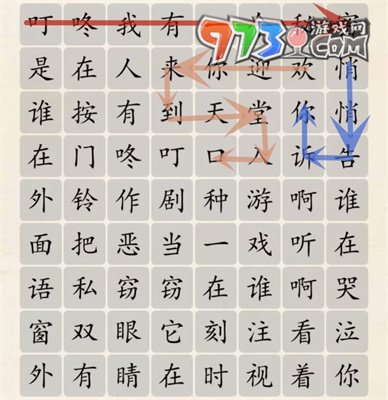 叮咚我有
973游戏网
是在人来你迎欢悄
谁按有到天堂你悄
在门咚叮口入诉告
外铃作剧种游啊谁
面把恶当一戏听在
语私窃窃在谁啊哭
窗双眼它刻注看泣
外有睛在时视着你